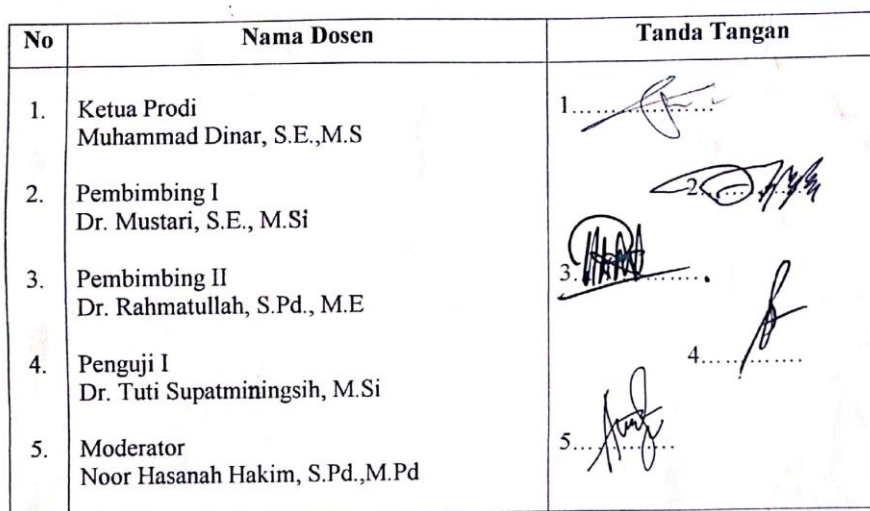 No Nama Dosen Tanda Tangan
1. Ketua Prodi 1....................
Muhammad Dinar, S.E.,M.S
2. Pembimbing I 2................
Dr. Mustari, S.E., M.Si
3. Pembimbing II 3..................
Dr. Rahmatullah, S.Pd., M.E
4. Penguji I 4................
Dr. Tuti Supatminingsih, M.Si
5. Moderator 5................
Noor Hasanah Hakim, S.Pd.,M.Pd